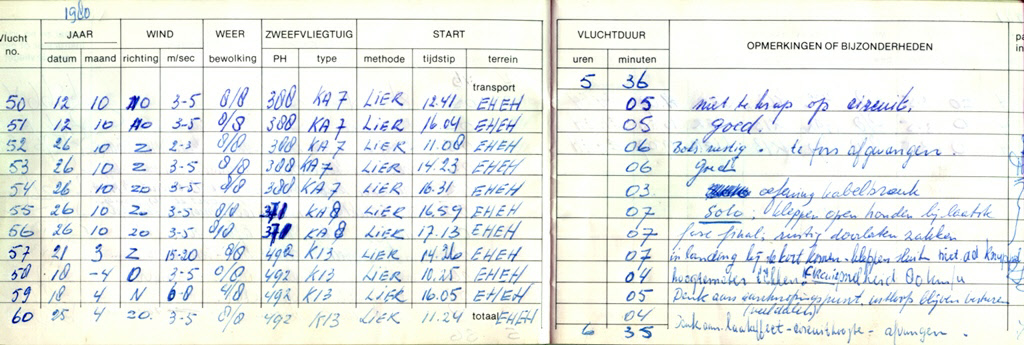 1980
Vlucht no. JAAR WIND WEER ZWEEFVLIEGTUIG START VLUCHTDUUR OPMERKINGEN OF BIJZONDERHEDEN
datum maand richting m/sec bewolking PH type methode tijdstip terrein uren minuten
transport 5 36
50 12 10 NO 3-5 8/8 388 KA7 LIER 12.41 EHEH 05 niet te krap op circuit.
51 12 10 NO 3-5 8/8 388 KA7 LIER 16.04 EHEH 05 goed.
52 26 10 Z 2-3 8/8 388 KA7 LIER 11.08 EHEH 06 rustig. te fors afvangen.
53 26 10 Z 3-5 8/8 388 KA7 LIER 14.23 EHEH 06 goed
54 26 10 ZO 3-5 8/8 388 KA7 LIER 16.31 EHEH 03 oefening kabelbreuk
55 26 10 ZO 3-5 8/8 371 KA8 LIER 16.59 EHEH 07 Solo: kleppen open houden bij laatste
56 26 10 ZO 3-5 8/8 371 KA8 LIER 17.13 EHEH 07 final. rustig doorlaten zakken
57 21 3 Z 15-20 LIER 14.26 492 K13 EHEH 07 in landing bij te kort komen kleppen dicht niet
58 18 4 O 2-5 0/8 492 K13 LIER 10.25 EHEH 04 hoogtemeter
59 18 4 N 6-8 4/8 492 K13 LIER 16.05 EHEH 05 Denk aan blijven
60 25 4 ZO 3-5 8/8 492 K13 LIER 11.24 EHEH 04
totaal 6 35 Denk aan - circuithoogte - afvangen.